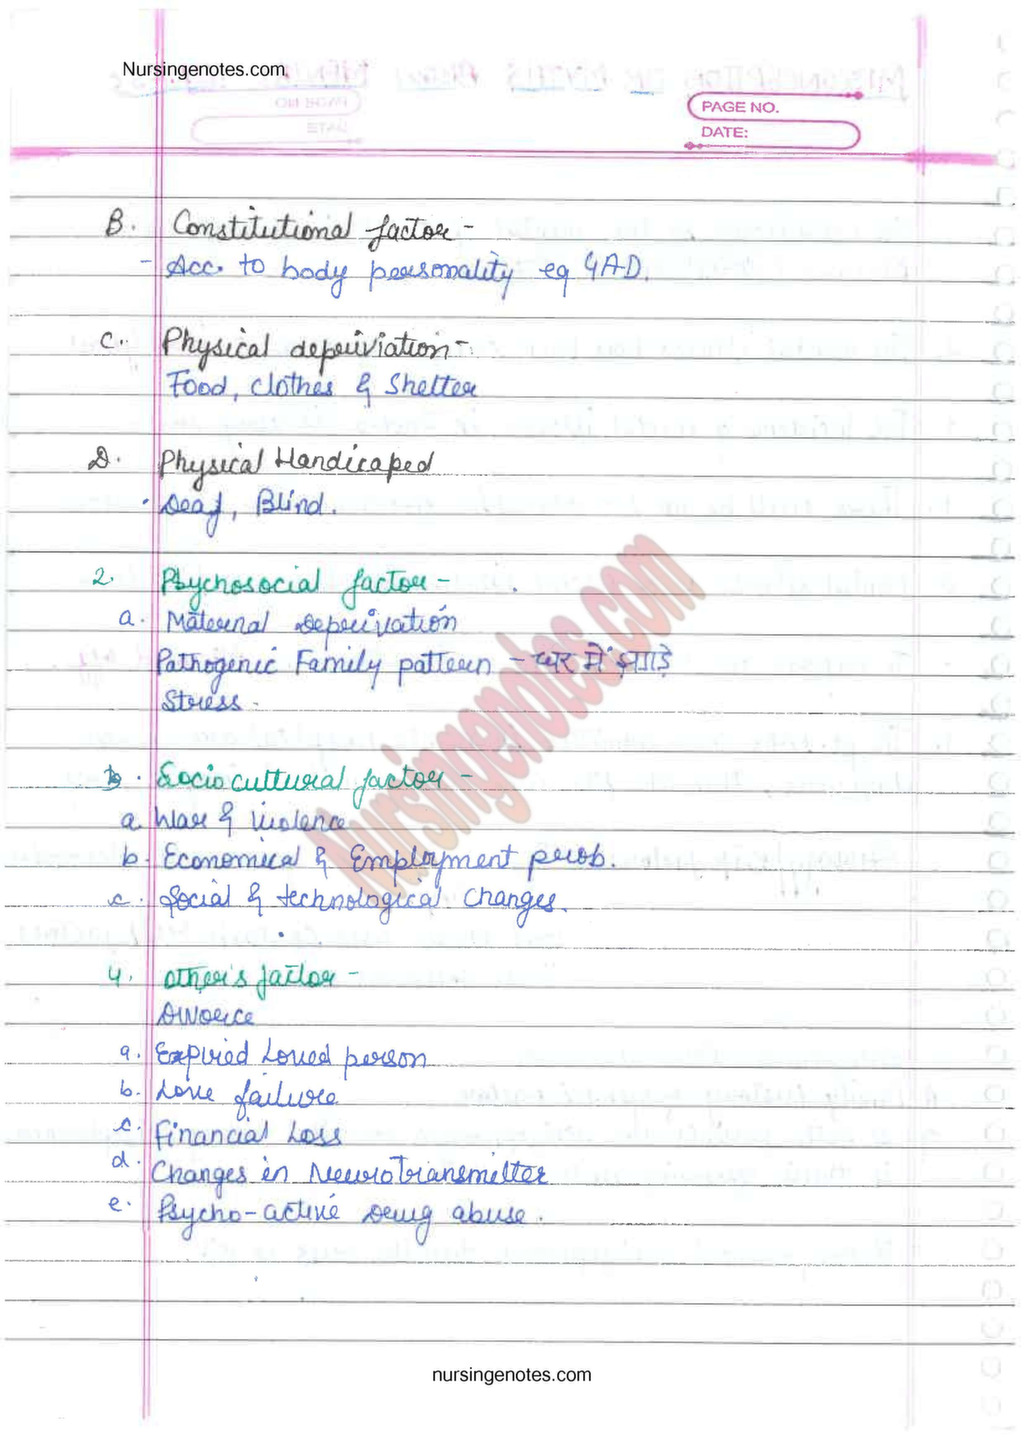 Nursingenotes.com
PAGE NO.
DATE:
B. Constitutional factor -
- Acc. to body personality eg GAD.
C. Physical depriviation -
Food, clothes & Shelter
D. Physical Handicaped
. Deaf, Blind.
2. Psychosocial factor -
a. Maternal Deprivation
Pathogenic Family pattern - घर में झगड़े
Stress.
b. Sociocultural factor -
a. War & Violence
b. Economical & Employment prob.
c. Social & technological Changes.
4. other's factor -
Divorce
a. Expired Loved person
b. Love failure
c. Financial Loss
d. Changes in Neurotransmitter
e. Psycho-active Drug abuse.
Nursingenotes.com
nursingenotes.com